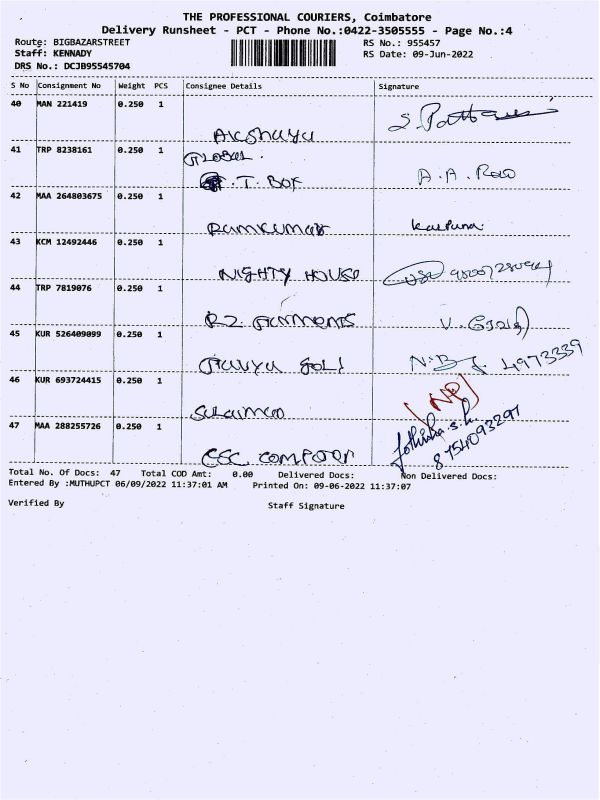 THE PROFESSIONAL COURIERS, Coimbatore
Delivery Runsheet - PCT - Phone No.:0422-3505555 - Page No.:4
Route: BIGBAZARSTREET
RS No.: 955457
Staff: KENNADY
RS Date: 09-Jun-2022
DRS No.: DCJB95545704
S No Consignment No Weight PCS Consignee Details Signature
40 MAN 221419 0.250 1
Akshaya
41 TRP 8238161 0.250 1 GLOBAL.
T. BOX A.A. Roso
42 MAA 264803675 0.250 1
Ramkumar Kalpana
43 KCM 12492446 0.250 1
NIGHTY HOUSE
44 TRP 7819076 0.250 1
RZ GARMENTS V.
45 KUR 526409099 0.250 1
GOLD N.B 4973339
46 KUR 693724415 0.250 1
Sulaiman NP
47 MAA 288255726 0.250 1
CSC COMPUTER Jothisha.s.k. 8754093297
Total No. Of Docs: 47 Total COD Amt: 0.00 Delivered Docs: Non Delivered Docs:
Entered By :MUTHUPCT 06/09/2022 11:37:01 AM Printed On: 09-06-2022 11:37:07
Verified By Staff Signature